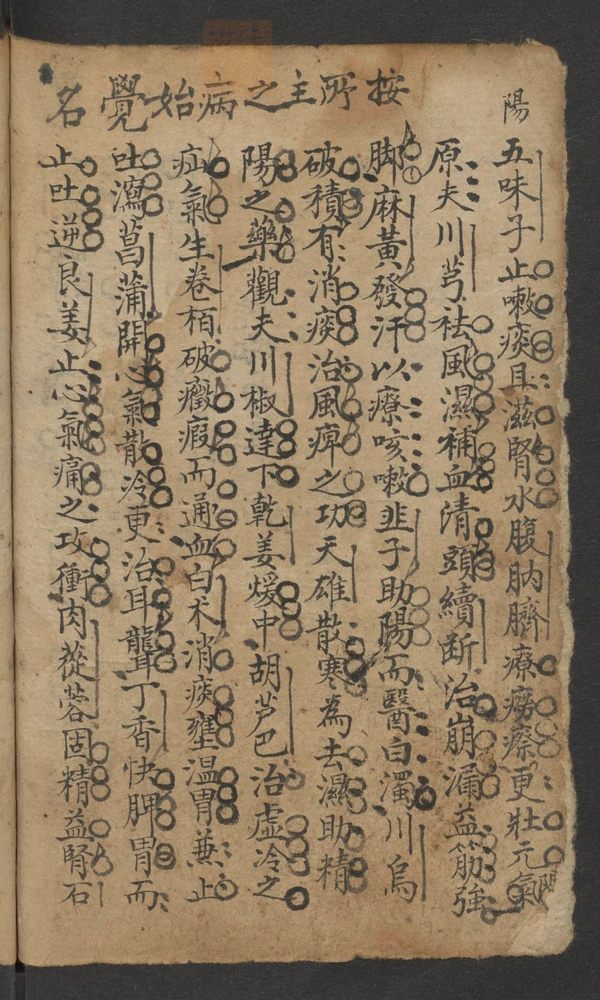 按所主之病始覺名
陽
五味子止嗽痰且滋腎水腹肭臍療癆瘵更壯元氣
原夫川芎袪風濕補血清頭續断治崩漏益筋強
脚麻黃發汗以療咳嗽韭子助陽而醫白濁川烏
破積有消痰治風痺之功天雄散寒為去濕助精
陽之藥觀夫川椒達下乾姜煖中胡芦巴治虛冷之
疝氣生卷栢破癥瘕而通血白术消痰壅温胃兼止
吐瀉菖蒲開心氣散冷更治耳聾丁香快脾胃而
止吐逆良姜止心氣痛之攻衝肉蓯蓉固精益腎石